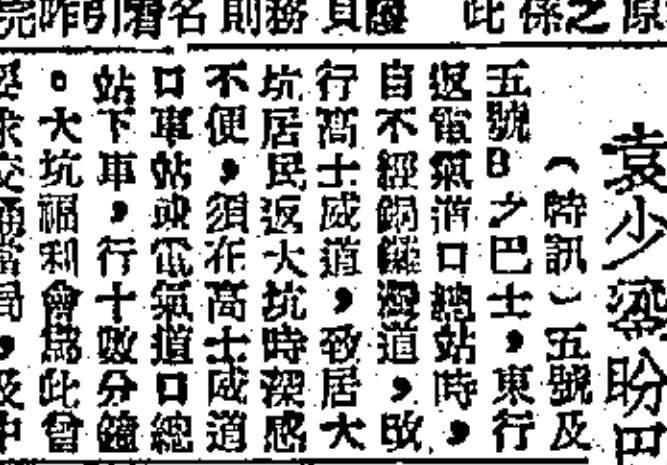 原
之
係
此
員
務
則
名
署
引
昨
完
袁少盼巴
（特訊）五號及
五號B之巴士，東行
返電氣道口總站時，
自不經銅鑼灣道，改
行高士威道，致居大
坑居民返大坑時深感
不便，須在高士威道
口車站或電氣道口總
站下車，行十數分鐘
。大坑福利會爲此曾
求交通當局，及中